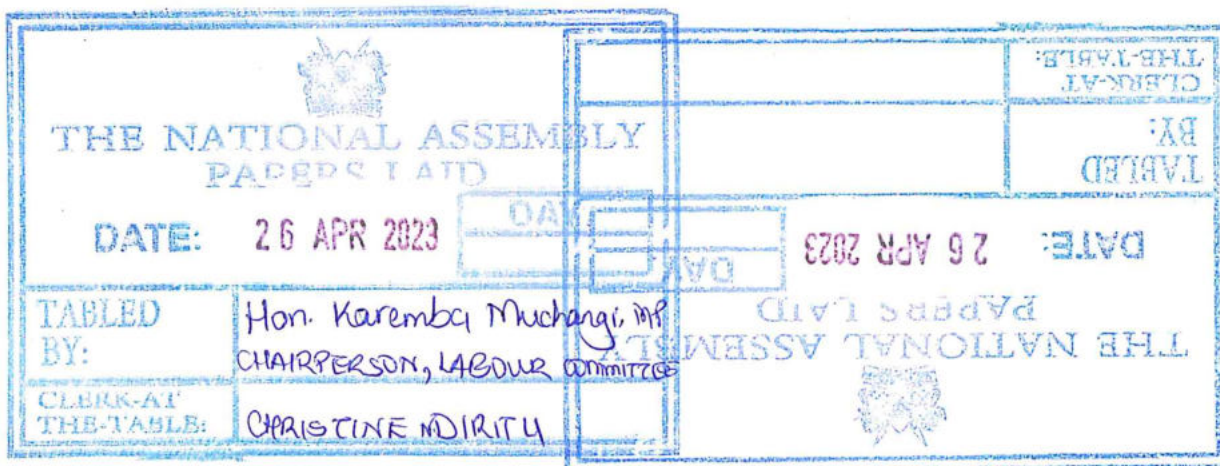 THE NATIONAL ASSEMBLY
PAPERS LAID
DATE: 26 APR 2023
DAY
TABLED BY: Hon. Karemba Muchangi, MP
CHAIRPERSON, LABOUR COMMITTEE
CLERK-AT THE-TABLE: CHRISTINE NDIRITU
THE NATIONAL ASSEMBLY
PAPERS LAID
DATE: 26 APR 2023
DAY
TABLED BY:
CLERK-AT THE-TABLE: